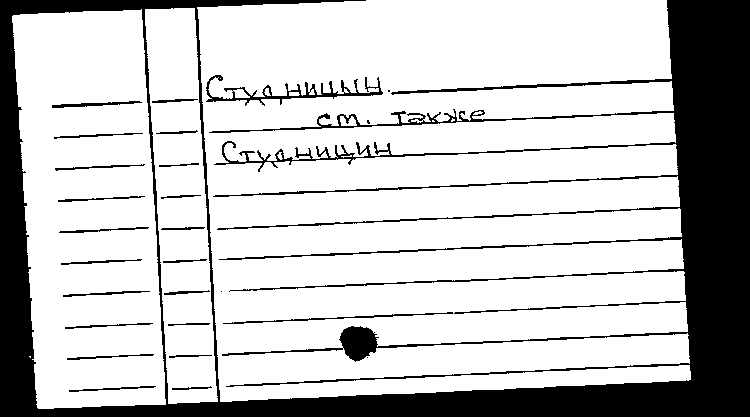 Студницын.
см. также
Студницин